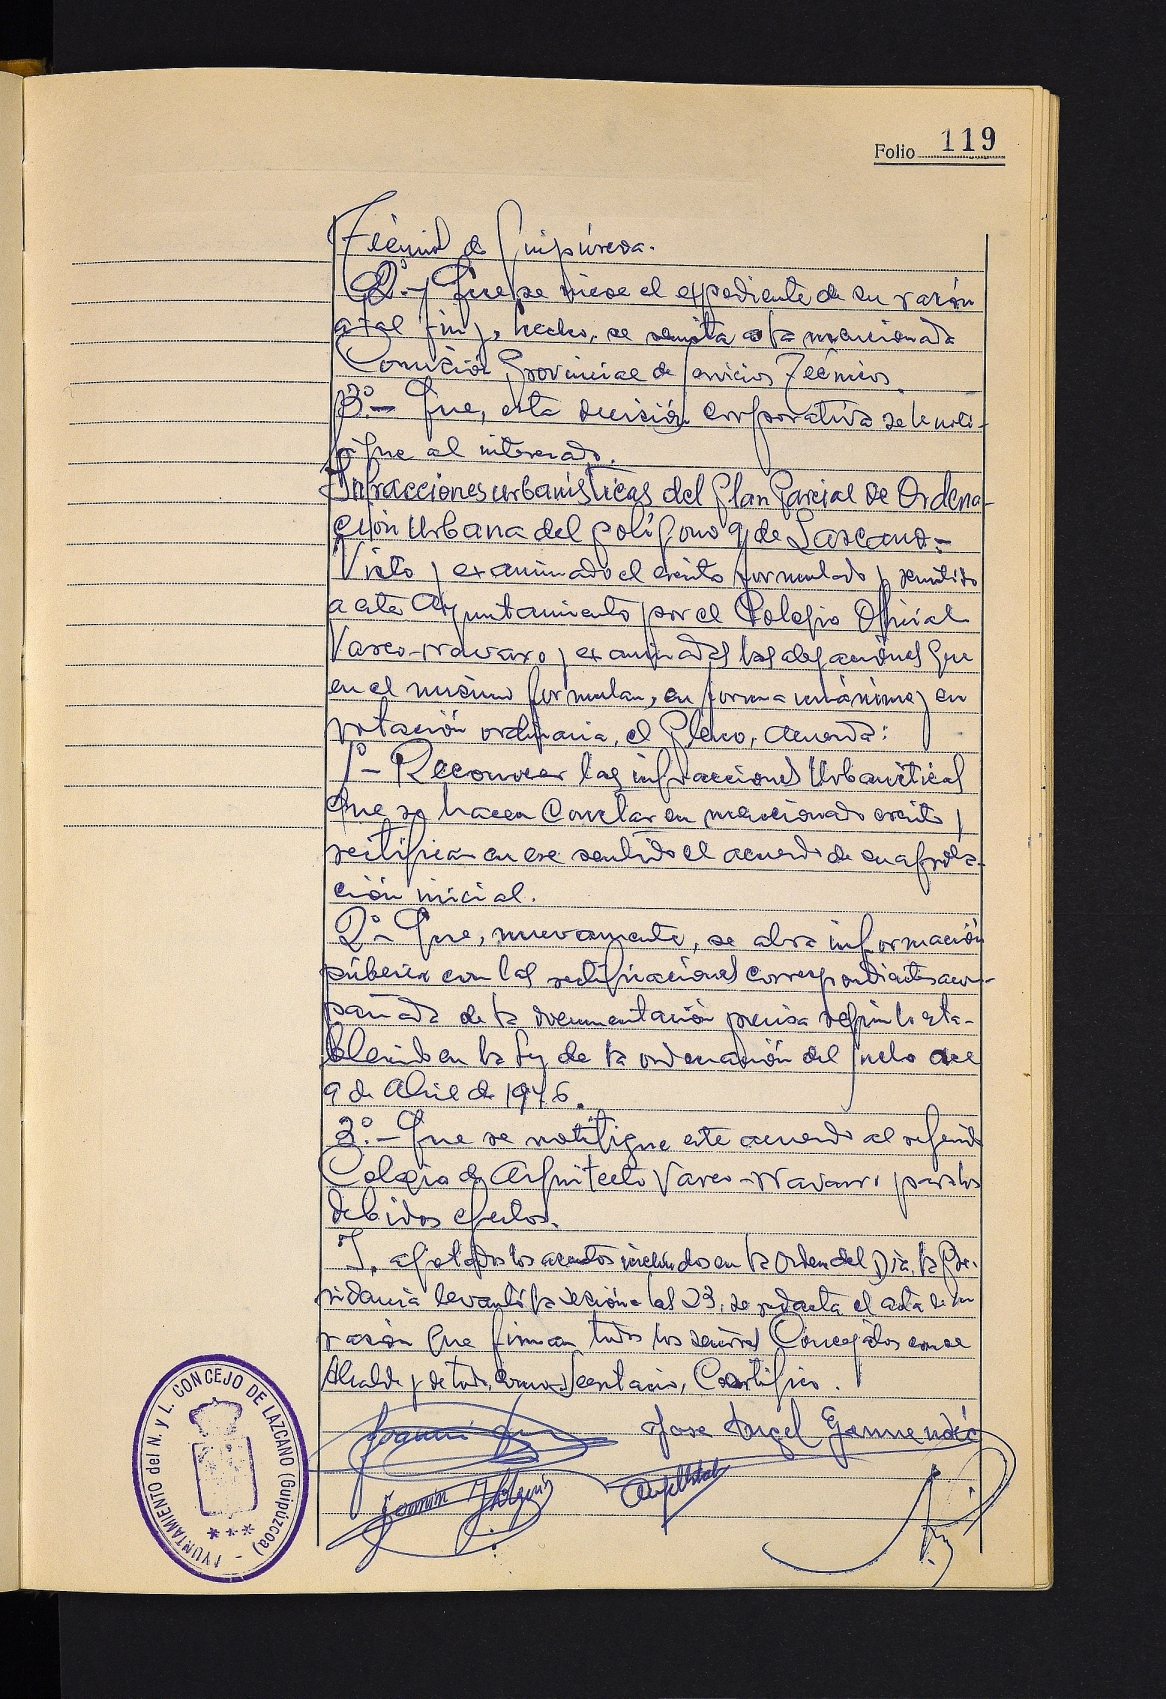 Folio 119
Técnicos de Guipúzcoa.
2º.- Que se inicie el expediente de su razón
a tal fin y, hecho, se remita a la mencionada
Comisión Provincial de Servicios Técnicos.
3º.- Que, esta decisión corporativa se le noti-
fique al interesado.
Infracciones urbanísticas del Plan Parcial de Ordena-
ción Urbana del polígono 9 de Lazcano.-
Visto y examinado el escrito formulado y remitido
a este Ayuntamiento por el Colegio Oficial
Vasco-navarro y examinadas las alegaciones que
en el mismo formulan, en forma unánime y en
votación ordinaria, el Pleno, acuerda:
1º- Reconocer las infracciones Urbanísticas
que se hacen constar en mencionado escrito y
rectifican en ese sentido el acuerdo de su aproba-
ción inicial.
2º- Que, nuevamente, se abra información
pública con las rectificaciones correspondientes acom-
pañada de la documentación precisa según lo esta-
blecido en la Ley de la ordenación del suelo del
9 de Abril de 1976.
3º.- Que se notifique este acuerdo al referido
Colegio de Arquitecto Vasco-Navarro para los
debidos efectos.
Y, agotados los asuntos incluidos en la Orden del Día, la Pre-
sidencia levantó la sesión a las 23, se redacta el acta de su
razón que firman todos los señores Concejales con el
Alcalde y de todo, como Secretario, Certifico.
Jose Angel Garmendia
AYUNTAMIENTO del N. y L. CONCEJO DE LAZCANO (Guipúzcoa) -